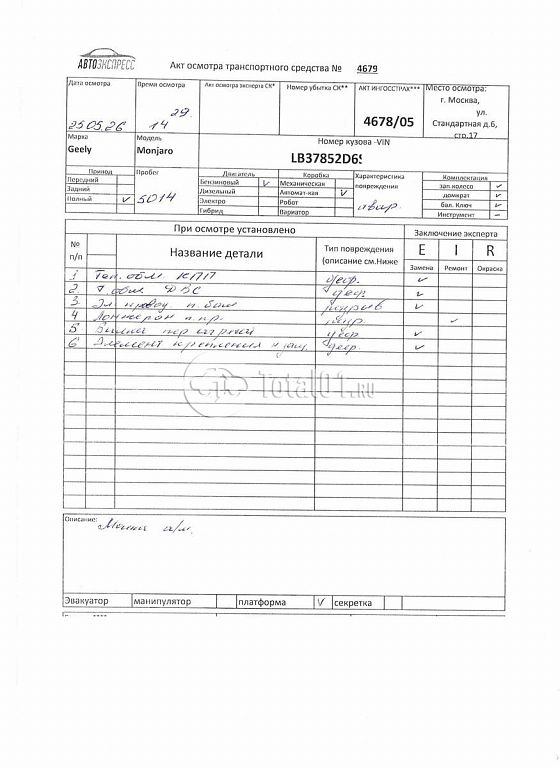 АВТОЭКСПРЕСС
Акт осмотра транспортного средства № 4679
Дата осмотра
25 05.26
Время осмотра
14 29
Акт осмотра эксперта СК*
Номер убытка СК**
АКТ ИНГОССТРАХ***
4678/05
Место осмотра:
г. Москва,
ул.
Стандартная д.6,
стр.17
Марка
Geely
Модель
Monjaro
Номер кузова -VIN
LB37852D6S
Привод
Передний
Задний
Полный V
Пробег
5014
Двигатель
Бензиновый V
Дизельный
Электро
Гибрид
Коробка
Механическая
Автомат-кая V
Робот
Вариатор
Характеристика
повреждения
авар.
Комплектация
зап.колесо ✓
домкрат ✓
бал. Ключ ✓
Инструмент –
При осмотре установлено
Заключение эксперта
№
п/п
Название детали
Тип повреждения
(описание см.Ниже
E I R
Замена Ремонт Окраска
1 КПП деф. ✓
2. ДВС деф ✓
3. Эл. провод п. бам разрыв ✓
4 Лонжерон п.пр. ✓
5 деф. ✓
6 Элемент крепления деф. ✓
Total01.RU
Описание:
а/м.
Эвакуатор манипулятор платформа V секретка